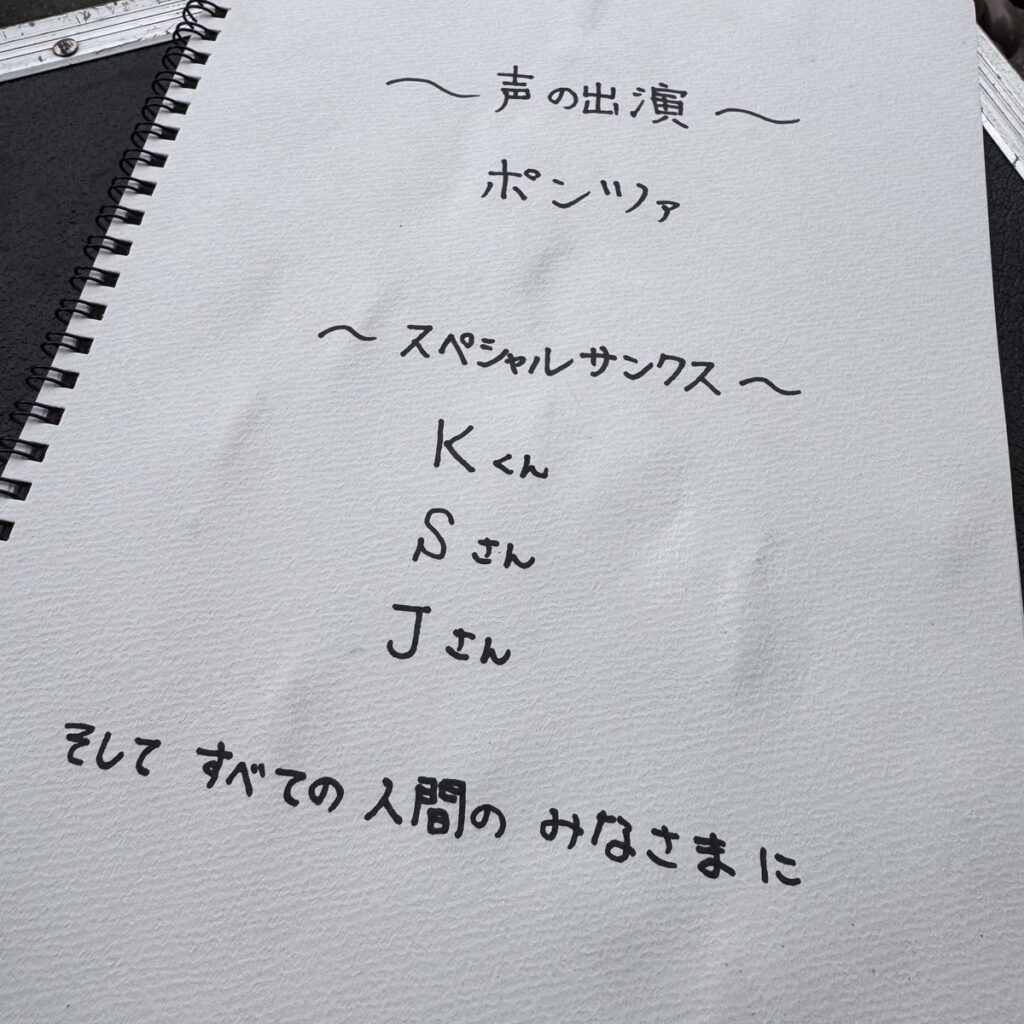 〜 声の出演 〜
ポンヅファ
〜 スペシャルサンクス 〜
Kくん
Sさん
Jさん
そして すべての 人間の みなさまに